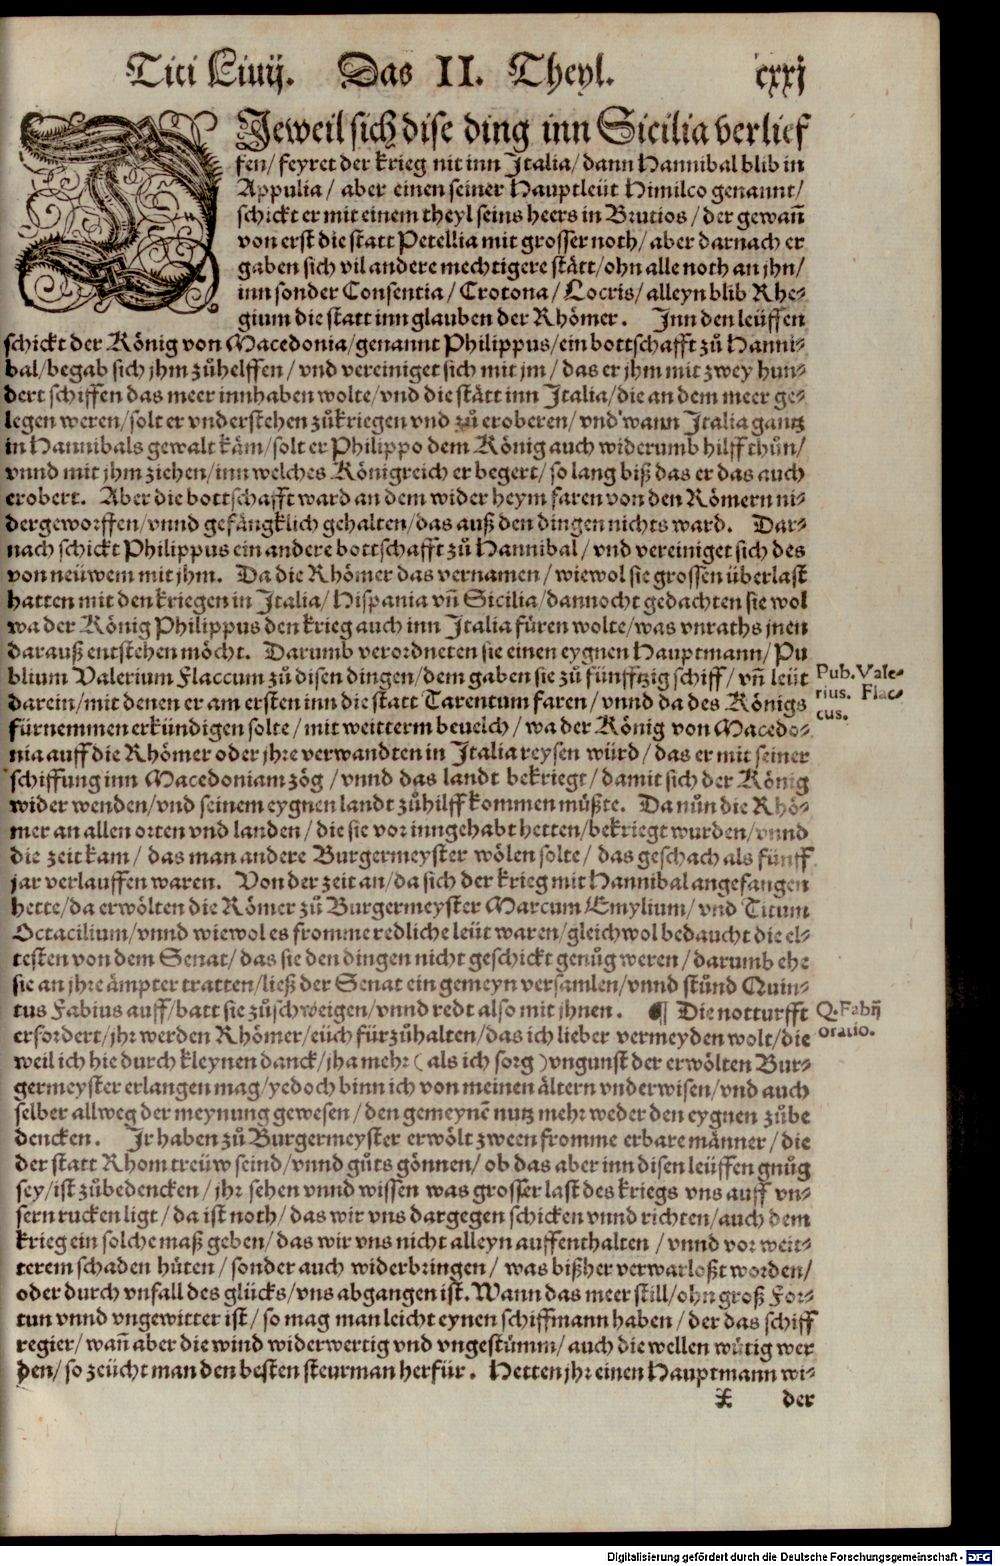 Titi Liuij. Das II. Theyl. cxxj
DJeweil sich dise ding inn Sicilia verlief
fen/ feyret der krieg nit inn Jtalia/ dann Hannibal blib in
Appulia/ aber einen seiner Hauptleüt Himilco genannt/
schickt er mit einem theyl seins heers in Brutios/ der gewañ
von erst die statt Petellia mit grosser noth/ aber darnach er
gaben sich vil andere mechtigere stätt/ohn alle noth an jhn/
inn sonder Consentia/ Crotona/ Locris/ alleyn blib Rhe-
gium die statt inn glauben der Rhömer. Jnn den leüffen
schickt der König von Macedonia/genannt Philippus/ein bottschafft zů Hanni-
bal/begab sich jhm zůhelffen/ vnd vereiniget sich mit jm/ das er jhm mit zwey hun-
dert schiffen das meer innhaben wolte/vnd die stätt inn Jtalia/die an dem meer ge-
legen weren/solt er vnderstehen zůkriegen vnd zů eroberen/ vnd wann Jtalia gantz
in Hannibals gewalt käm/solt er Philippo dem König auch widerumb hilff thůn/
vnnd mit jhm ziehen/inn welches Königreich er begert/ so lang biß das er das auch
erobert. Aber die bottschafft ward an dem wider heym faren von den Römern ni-
dergeworffen/vnnd gefängklich gehalten/das auß den dingen nichts ward. Dar-
nach schickt Philippus ein andere bottschafft zů Hannibal/ vnd vereiniget sich des
von neüwem mit jhm. Da die Rhömer das vernamen/ wiewol sie grossen überlast
hatten mit den kriegen in Jtalia/ Hispania vñ Sicilia/dannocht gedachten sie wol
wa der König Philippus den krieg auch inn Jtalia füren wolte/was vnraths jnen
darauß entstehen möcht. Darumb verordneten sie einen eygnen Hauptmann/ Pu
blium Valerium Flaccum zů disen dingen/dem gaben sie zů fünfftzig schiff/ vñ leüt
darein/mit denen er am ersten inn die statt Tarentum faren/ vnnd da des Königs
fürnemmen erkündigen solte/ mit weitterm beuelch/ wa der König von Macedo-
nia auff die Rhömer oder jhre verwandten in Jtalia reysen würd/ das er mit seiner
schiffung inn Macedoniam zög/ vnnd das landt bekriegt/ damit sich der König
wider wenden/vnd seinem eygnen landt zůhilff kommen müßte. Da nůn die Rhö-
mer an allen orten vnd landen/ die sie vor inngehabt hetten/bekriegt wurden/vnnd
die zeit kam/ das man andere Burgermeyster wölen solte/ das geschach als fünff
jar verlauffen waren. Von der zeit an/da sich der krieg mit Hannibal angefangen
hette/da erwölten die Römer zů Burgermeyster Marcum Emylium/ vnd Titum
Octacilium/vnnd wiewol es fromme redliche leüt waren/gleichwol bedaucht die el-
testen von dem Senat/ das sie den dingen nicht geschickt genůg weren/ darumb ehe
sie an jhre ämpter tratten/ließ der Senat ein gemeyn versamlen/vnnd stůnd Quin-
tus Fabius auff/batt sie zůschweigen/vnnd redt also mit jhnen. ¶ Die notturfft
erfordert/jhr werden Rhömer/eüch fürzůhalten/das ich lieber vermeyden wolt/die
weil ich hie durch kleynen danck/jha mehr (als ich sorg) vngunst der erwölten Bur-
germeyster erlangen mag/yedoch binn ich von meinen ältern vnderwisen/vnd auch
selber allweg der meynung gewesen/ den gemeynē nutz mehr weder den eygnen zůbe
dencken. Jr haben zů Burgermeyster erwölt zween fromme erbare männer/ die
der statt Rhom treüw seind/vnnd gůts gönnen/ ob das aber inn disen leüffen gnůg
sey/ist zůbedencken/ jhr sehen vnnd wissen was grosser last des kriegs vns auff vn-
sern rucken ligt/ da ist noth/ das wir vns dargegen schicken vnnd richten/auch dem
krieg ein solche maß geben/das wir vns nicht alleyn auffenthalten/ vnnd vor weit-
terem schaden hüten/ sonder auch widerbringen/ was bißher verwarloßt worden/
oder durch vnfall des glücks/vns abgangen ist. Wann das meer still/ohn groß For-
tun vnnd vngewitter ist/ so mag man leicht eynen schiffmann haben/ der das schiff
regier/ wañ aber die wind widerwertig vnd vngestümm/ auch die wellen wütig wer
den/ so zeücht man den besten steurman herfür. Hetten jhr einen Hauptmann wi-
der
Pub. Vale-
rius. Flac-
cus.
Q. Fabij
oratio.
Digitalisierung gefördert durch die Deutsche Forschungsgemeinschaft - DFG